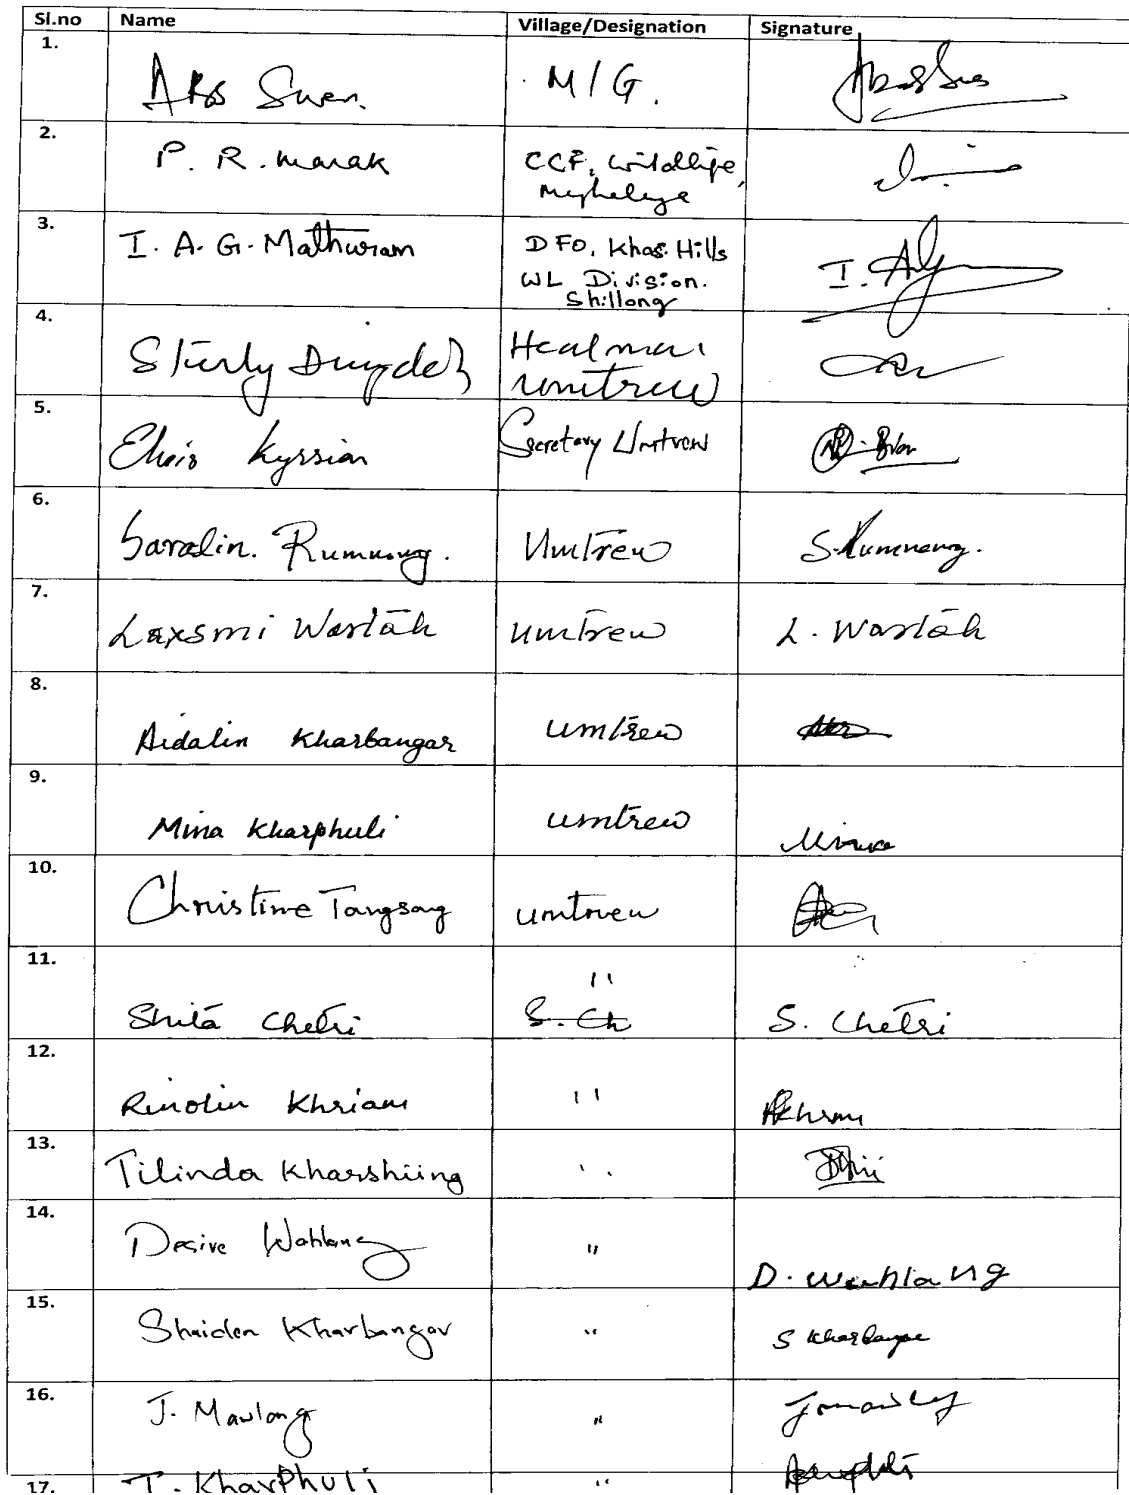 Sl.no Name Village/Designation Signature
1. Swer. M/G.
2. P. R. Marak CCF, Wildlife,
Meghalaya
3. I. A. G. Mathuram DFO, Khasi Hills
WL Division.
Shillong
I.
4. Headman
Umtrew
5. Kyrsian Secretary Umtrew
6. Saralin. Rumnong. Umtrew S. Rumnong.
7. Laxsmi Warlāh umtrew L. Warlāh
8. Aidalin Kharbangar umtrew
9. Mina Kharphuli umtrew Mina
10. Christine Tangsang umtrew
11. "
Shita Chetri S. Ch S. Chetri
12. Rinolin Khriam "
13. Tilinda Kharshiing "
14. Desire Wahlang "
D. Wahlang
15. Shaiden Kharbangar " S Kharbangar
16. J. Mawlong "
17. T. Kharphuli "